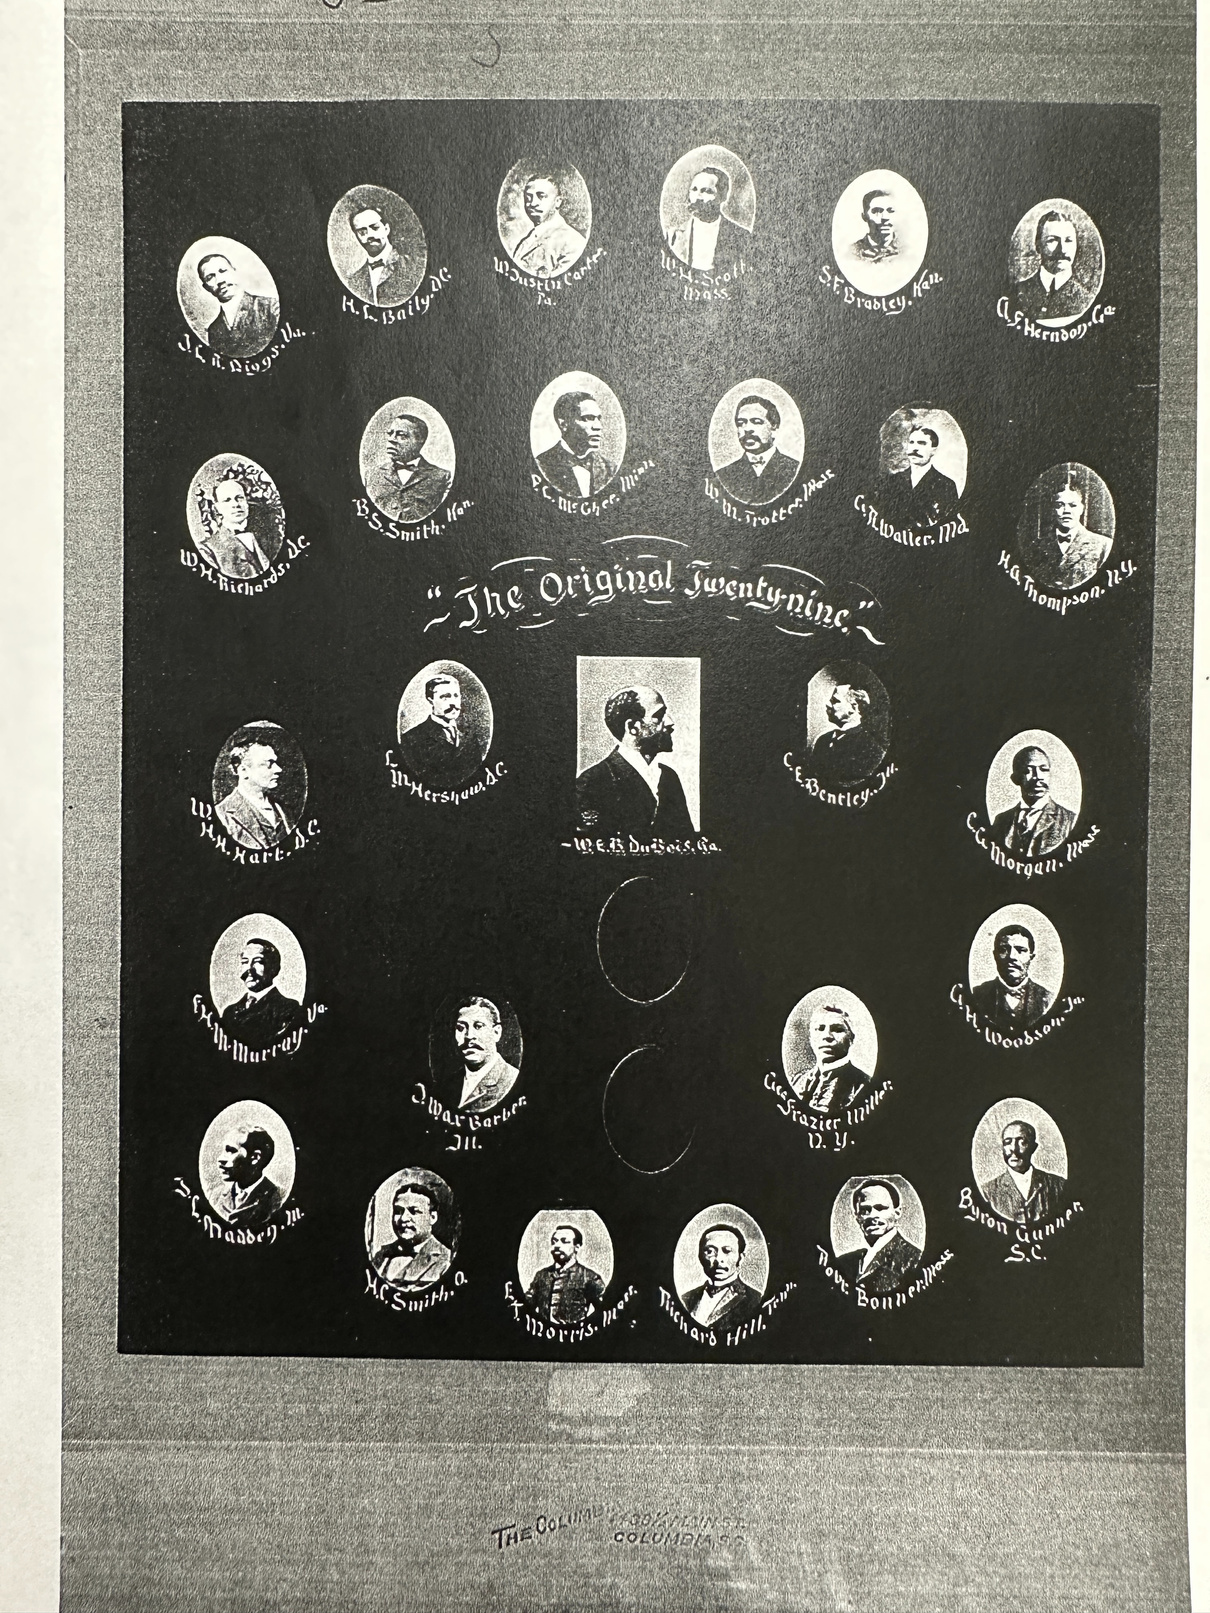 J. L. R. Diggs. Va.
H. L. Baily. D.C.
W. Justin Carter.
Pa.
W. H. Scott.
Mass
S. F. Bradley, Kan.
A. F. Herndon. Ga.
W. H. Richards, D.C.
B. S. Smith. Kan.
F. L. McGhee. Minn
W. M. Trotter. Mass
G. R. Waller, Md.
H. A. Thompson. N.Y.
"The Original Twenty-nine."
W. H. H. Hart. D.C.
L. M. Hershaw. D.C.
W. E. B. DuBois. Ga.
C. E. Bentley. Ill.
C. G. Morgan. Mass
F. H. M. Murray. Va.
J. Max Barber
Ill.
Geo Frazier Miller
N. Y.
G. H. Woodson. Ia.
L. Madden. M.
H. C. Smith. O.
E. T. Morris. Mass.
Richard Hill. Tenn.
Robt Bonner. Mass
Byron Gunner
S.C.
THE
COLUMBIA, S.C.